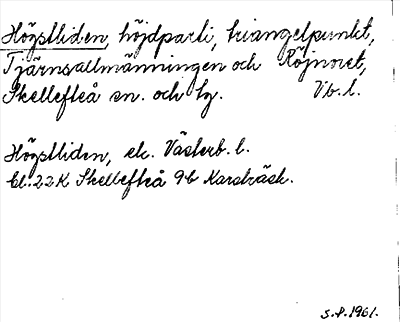 Högstliden, höjdparti, triangelpunkt,
Tjärnsallmänningen och Röjnoret,
Skellefteå sn. och tg. Vb.l.
Högstliden, ek. Västerb. l.
Bl. 22 K Skellefteå 9b Karsträsk.
S.P. 1961.